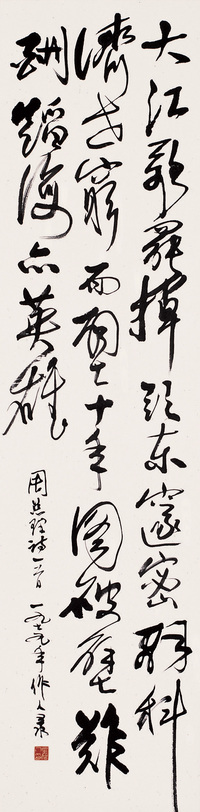 大江歌罷掉頭东邃密群科
濟世窮面壁十年图破壁難
酬蹈海亦英雄
周总理诗一首 一九七九年 作人录